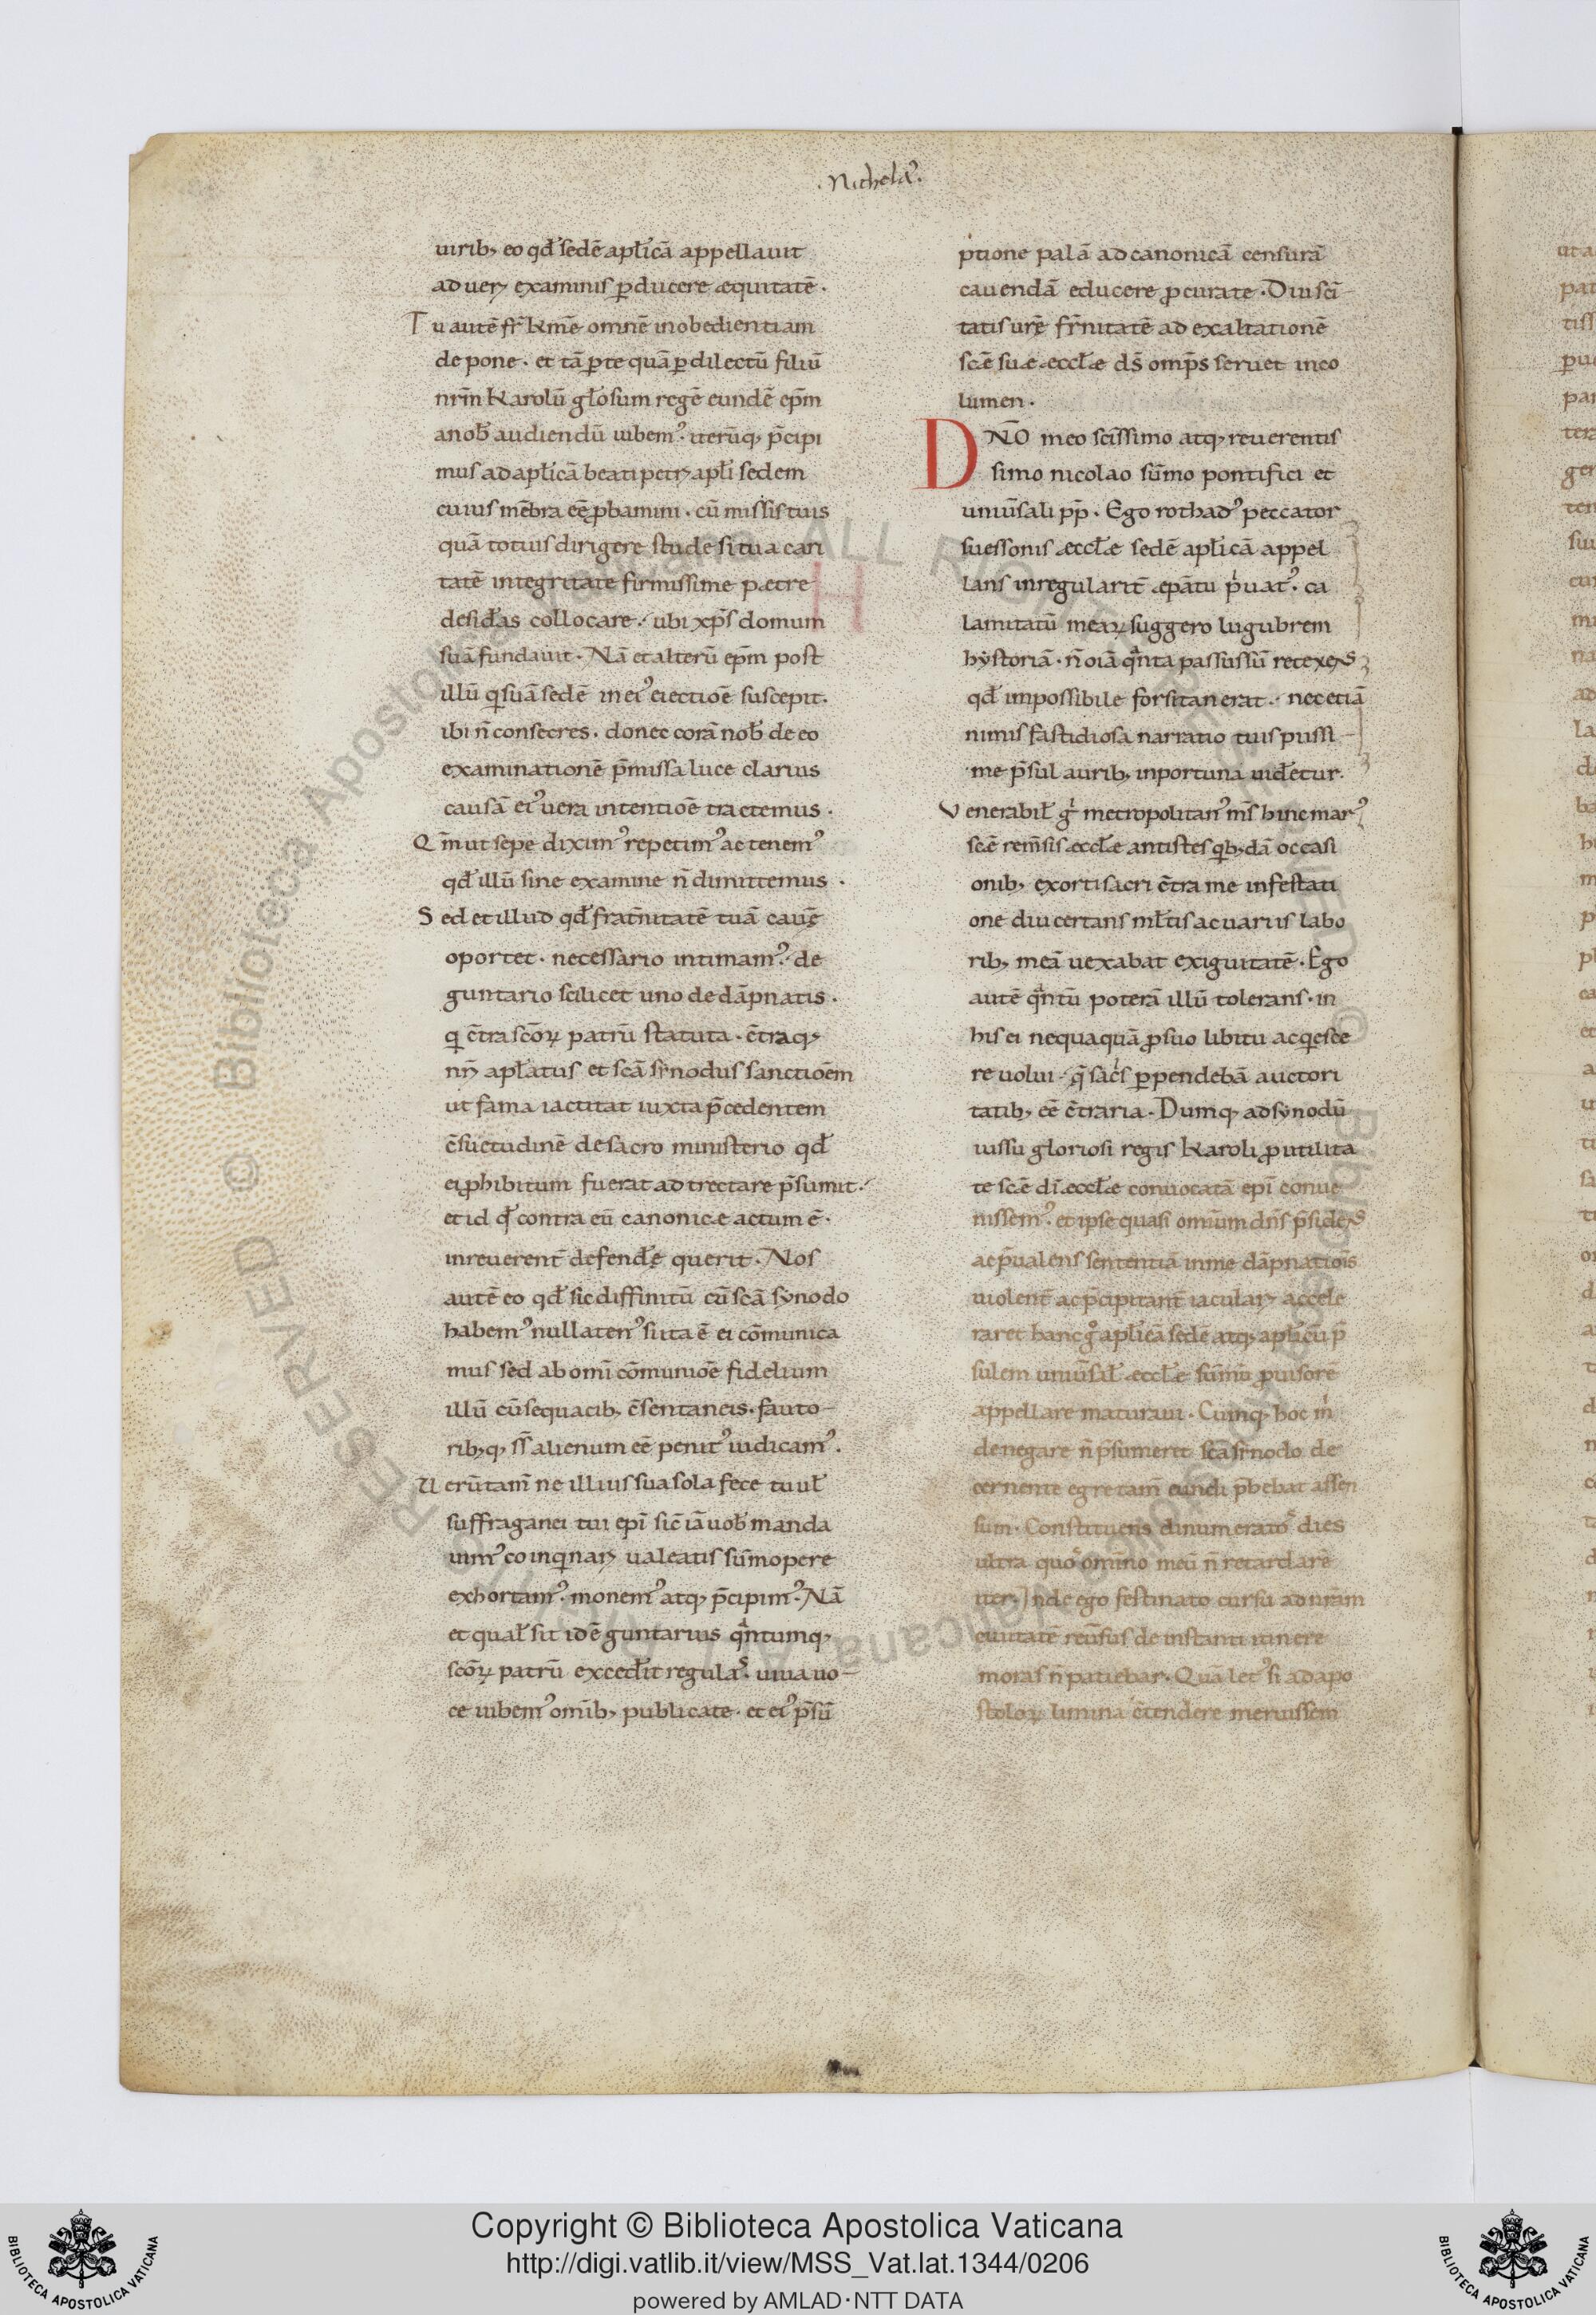 .Nichola᾽.
uirib; eo qđ sedē apl̄icā appellauit
ad ueꝝ examinis ꝑducere æquitatē.
Tu autē fr̄ km̄e omnē inobedientiam
depone. et tā ꝑ te quā ꝑ dilectū filiū
nr̄m karolū gl̄osum regē eundē ep̄m
a nob̄ audiendū iubem᾽. iterūq; p̄cipi
mus ad apl̄icā beati petri apl̄i sedem
cuius mēbra eē ꝓbamini. cū missis tuis
quā totius dirigere stude si tua cari
tatē integritate firmissime petre
desid̄as collocare. ubi xp̄s domum
suā fundauit. Nā et alterū ep̄m post
illū qi suā sedē in ei᾽ eiectioē suscepit.
ibi n̄ consecres. donec corā nob̄ de eo
examinationē p̄missa luce clarius
causā ei᾽ uera intentioē tractemus.
Qm̄ ut sepe dixim᾽ repetim᾽ ac tenem᾽
qđ illū sine examine n̄ dimittemus.
Sed et illud qđ frat̄nitatē tuā cauę
oportet. necessario intimam᾽. de
guntario scilicet uno de dāpnatis.
qi c̄tra scōꝝ patrū statuta. c̄traq;
nr̄i apl̄atus et scā sinodus sanctioēm
ut fama iactitat iuxta p̄cedentem
c̄suetudinē de sacro ministerio qđ
ei ꝓhibitum fuerat adtrectare p̄sumit.
et id qđ contra eū canonicæ actum ē.
inreuerent̄ defend̄e querit. Nos
autē eo qđ sic diffinitū cū scā synodo
habem᾽ nullaten᾽ si ita ē ei cōmunica
mus sed ab omī cōmunioē fidelium
illū cū sequacib; c̄sentaneis. fauto-
rib;q; ss̄ alienum eē penit᾽ iudicam᾽.
Uerūtam̄ ne illius sua sola fece tu ul̄
suffraganei tui epī sic̄ iā uob̄ manda
uim᾽ coinqinari ualeatis sūmopere
exhortam᾽. monem᾽ atq; p̄cipim᾽. Nā
et qual̄ sit idē guntarius qntumq;
scōꝝ patrū exced̄it regulas. uiua uo-
ce iubem᾽ omīb; publicate. et ei᾽ p̄sū
ptione palā ad canonicā censurā
cauendā educere ꝓcurate. Diu sci
tatis ur̄ę fr̄nitatē ad exaltationē
scē suæ æccl̄æ ds̄ omp̄s seruet inco
lumen.
DNŌ meo scissimo atq; reuerentis
simo nicolao sūmo pontifici et
uniūsali pp̄. Ego rothad᾽ peccator
suessonis æccl̄æ sedē apl̄icā appel
lans inregularit̄ æpātu p̄uat᾽. ca
lamitatū meaꝝ suggero lugubrem
hystoriā. n̄ oīā qnta passus sū retexens
qđ impossibile forsitan erat. nec etiā
nimis fastidiosa narratio tuis piissi-
me p̄sul aurib; inportuna uid̄etur.
Venerabil̄ gi metropolitan᾽ m̄s hincmar᾽
scē rem̄sis æccl̄æ antistes qib;dā occasi
onib; exorti sacri c̄tra me infestati
one diu certans ml̄tis ac uariis labo
rib; meā uexabat exiguitatē. Ego
autē qntū poterā illū tolerans. in
his ei nequaquā ꝓ suo libitu acqiesce
re uolui. q̄ sacs ꝑpendebā auctori
tatib; eē c̄traria. Dumq; ad synodū
iussu gloriosi regis karoli ꝓ utilita
te scē dī æccl̄æ conuocatā epī conue
nissem᾽. et ipse quasi omīum dn̄s p̄sidens
ac p̄ualens sententiā in me dāpnatiois
uiolent̄ ac p̄cipitant̄ iaculari accele
raret hanc go apl̄icā sedē atq; apl̄icū p̄
sulem uniūsal̄ æccl̄æ sūmū ꝓuisorē
appellare maturaui. Cumq; hoc mi
denegare n̄ p̄sumeret scā sinodo de
cernente egre tam̄ eundi p̄bebat assen
sum. Constituens dinumeratos dies
ultra quos omīno meū n̄ retardarē
iter. Inde ego festinato cursu ad nr̄am
ciuitatē reūsus de instanti itinere
moras n̄ patiebar. Quā let᾽ si ad apo
stoloꝝ limina c̄tendere meruissem
Copyright © Biblioteca Apostolica Vaticana
http://digi.vatlib.it/view/MSS_Vat.lat.1344/0206
powered by AMLAD·NTT DATA